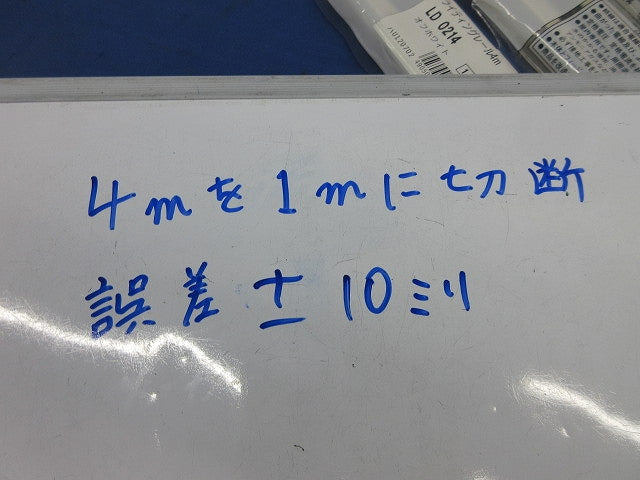 ライティングレール4m
LD 0214
オフホワイト
4mを1mに切断
誤差±10ミリ